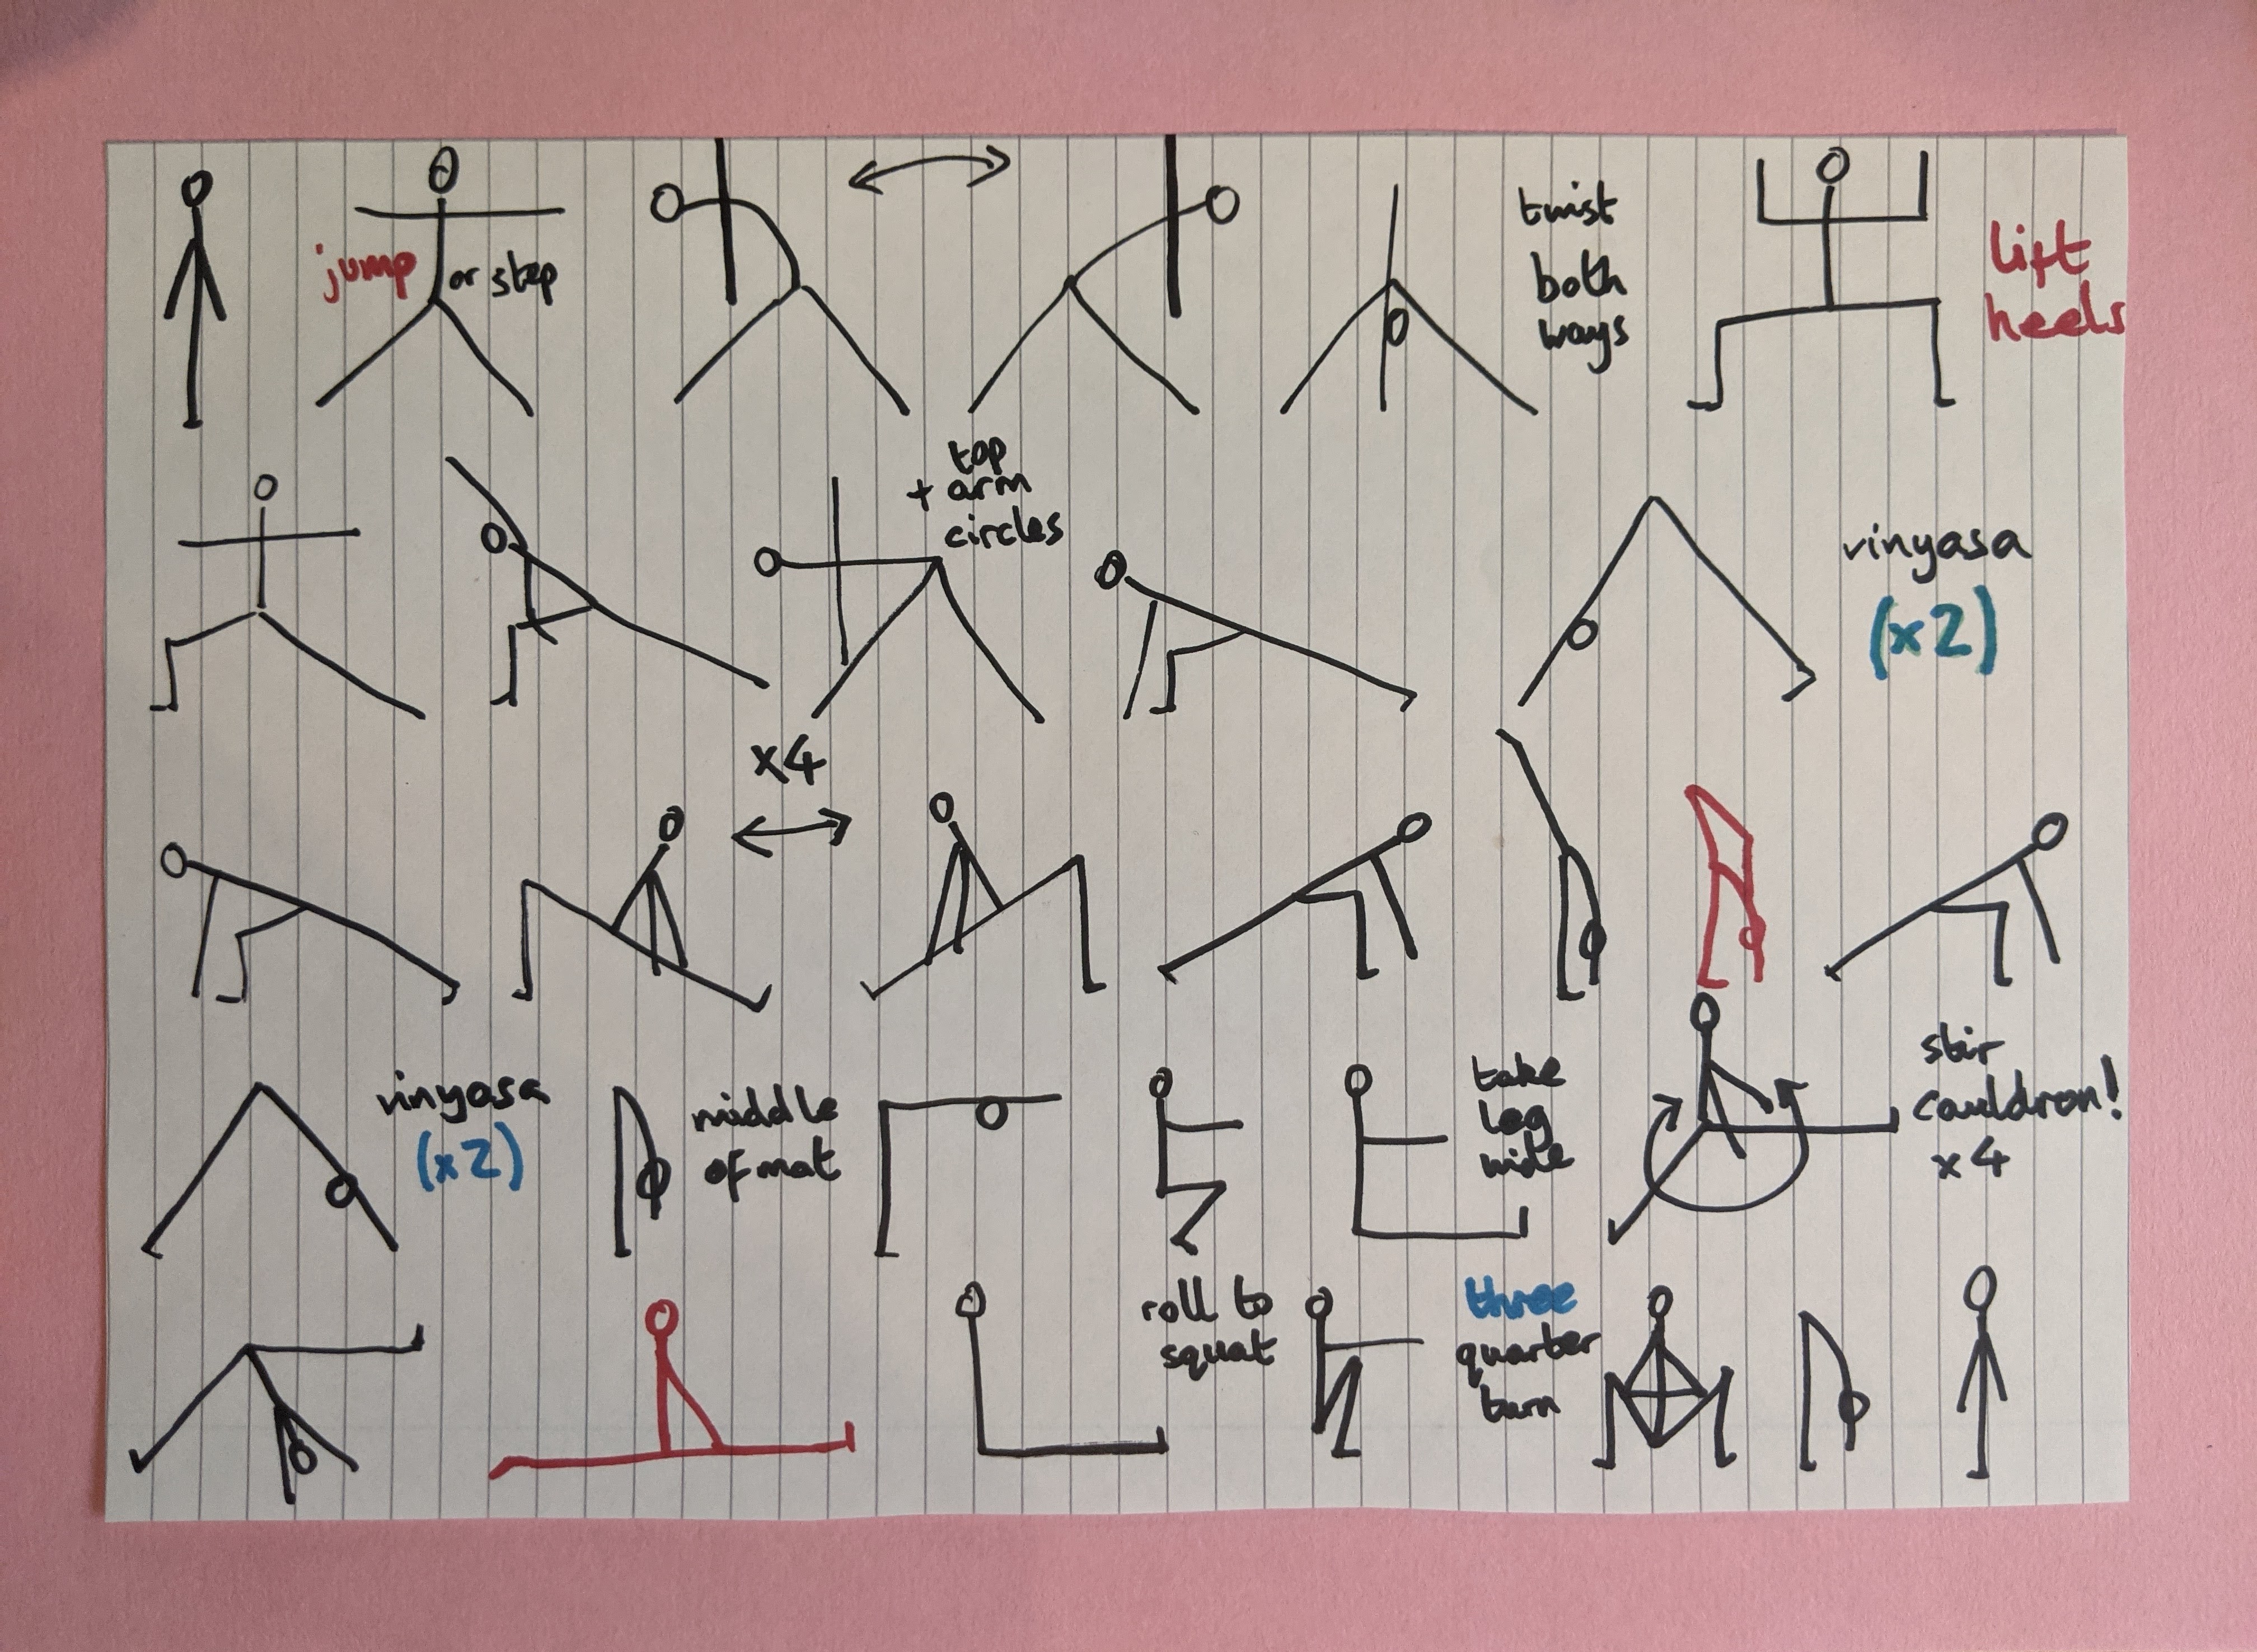 jump or step
twist
both
ways
lift
heels
top
+ arm
circles
vinyasa
(x2)
x4
vinyasa
(x2)
middle
of mat
take
leg
wide
stir
cauldron!
x4
roll to
squat
three
quarter
turn